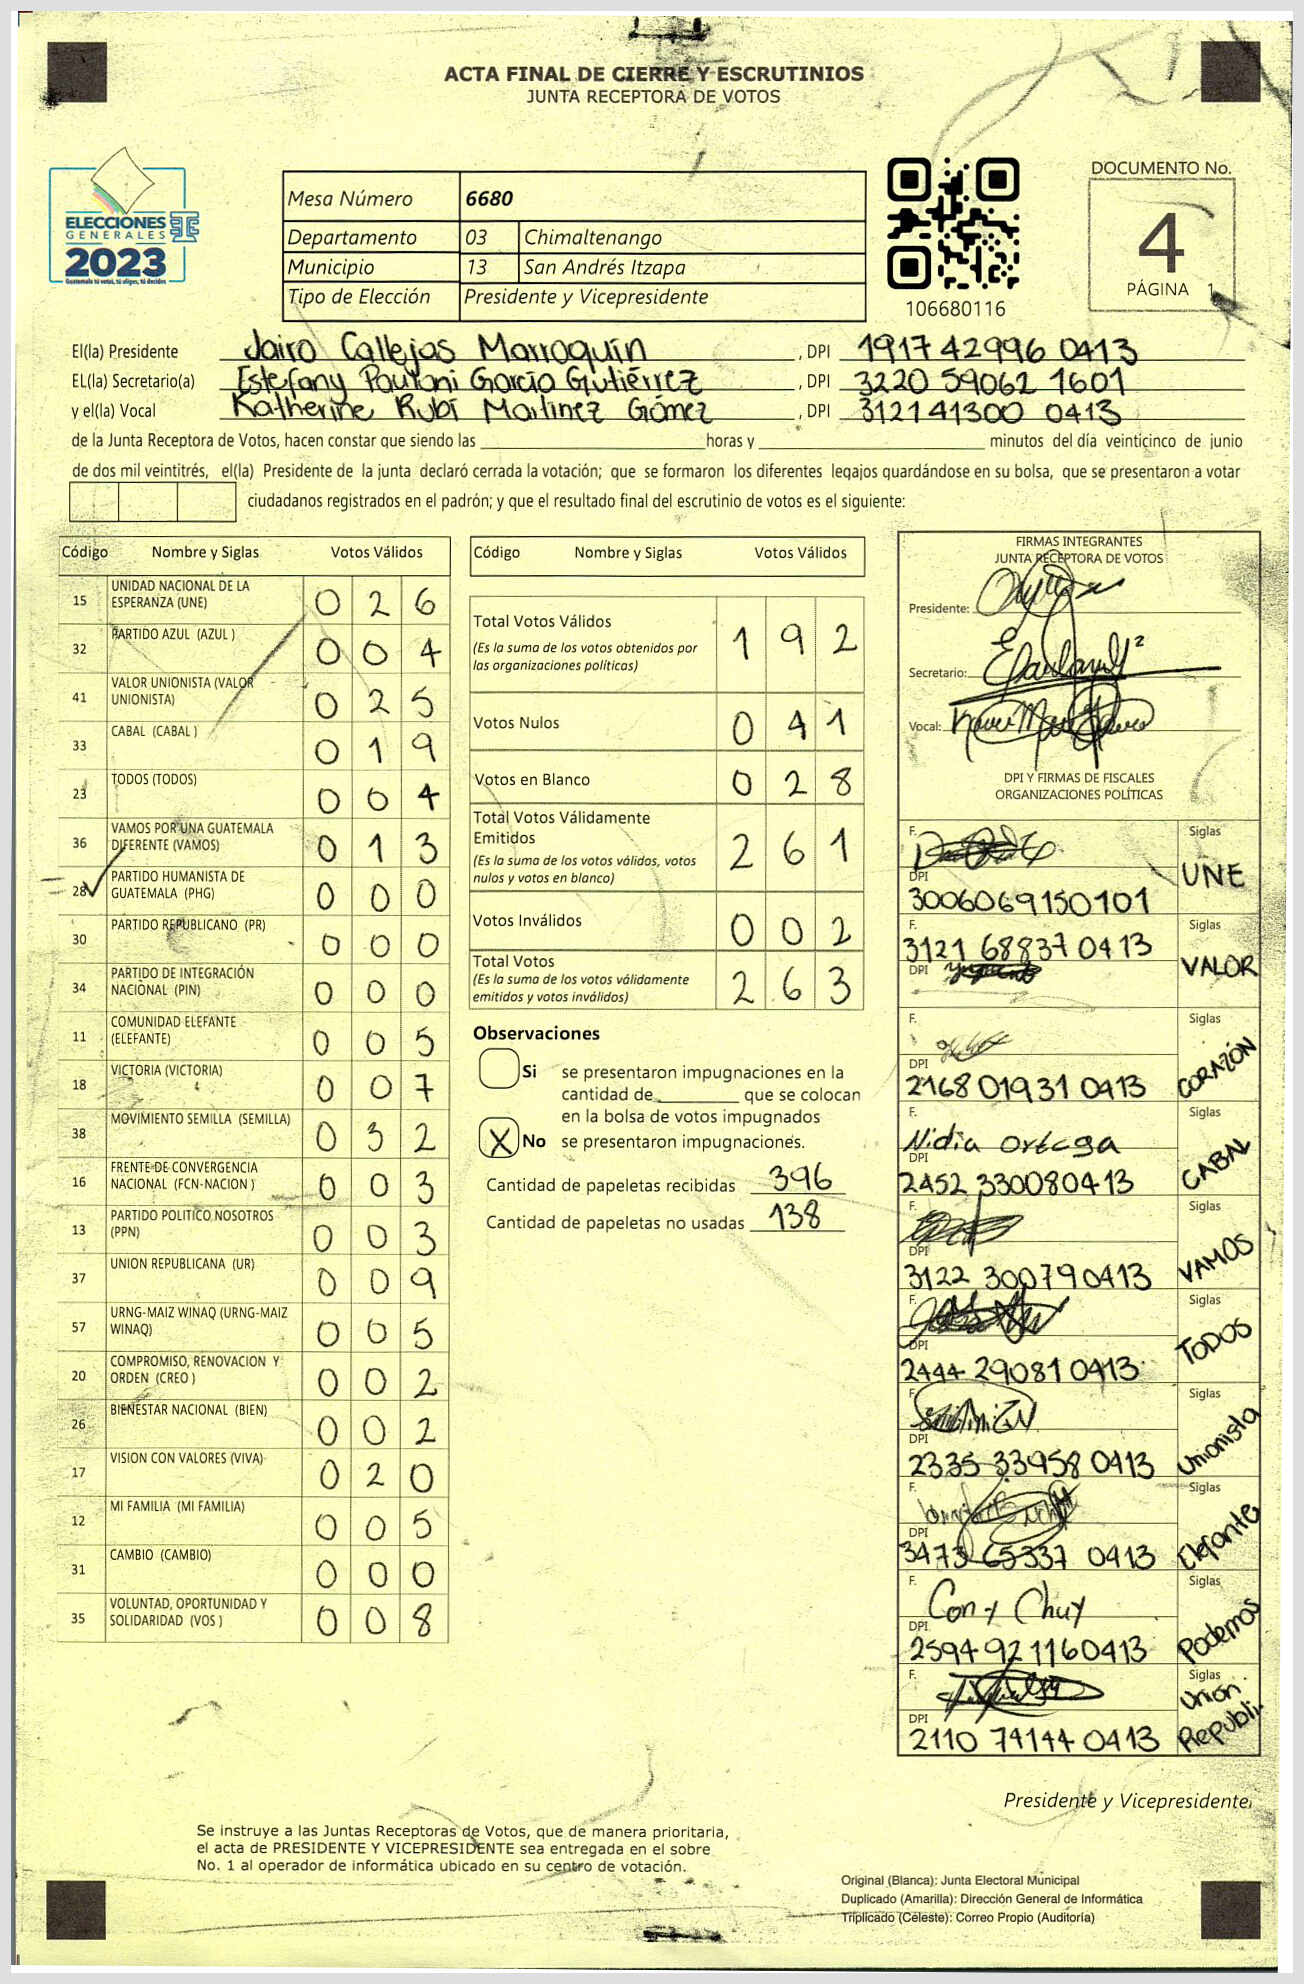 ACTA FINAL DE CIERRE Y ESCRUTINIOS
JUNTA RECEPTORA DE VOTOS
ELECCIONES
GENERALES
2023
Guatemala tú votas, tú eliges, tú decides
Mesa Número 6680
Departamento 03 Chimaltenango
Municipio 13 San Andrés Itzapa
Tipo de Elección Presidente y Vicepresidente
106680116
DOCUMENTO No.
4
PÁGINA 1
El(la) Presidente Jairo Callejas Marroquín , DPI 1917 42996 0413
EL(la) Secretario(a) Estefany Paulani García Gutiérrez , DPI 3220 59062 1601
y el(la) Vocal Katherine Rubí Martinez Gómez , DPI 312141300 0413
de la Junta Receptora de Votos, hacen constar que siendo las horas y minutos del día veinticinco de junio
de dos mil veintitrés, el(la) Presidente de la junta declaró cerrada la votación; que se formaron los diferentes legajos guardándose en su bolsa, que se presentaron a votar
ciudadanos registrados en el padrón; y que el resultado final del escrutinio de votos es el siguiente:
Código Nombre y Siglas Votos Válidos
15 UNIDAD NACIONAL DE LA ESPERANZA (UNE) 0 2 6
32 PARTIDO AZUL (AZUL ) 0 0 4
41 VALOR UNIONISTA (VALOR UNIONISTA) 0 2 5
33 CABAL (CABAL ) 0 1 9
23 TODOS (TODOS) 0 0 4
36 VAMOS POR UNA GUATEMALA DIFERENTE (VAMOS) 0 1 3
28 PARTIDO HUMANISTA DE GUATEMALA (PHG) 0 0 0
30 PARTIDO REPUBLICANO (PR) 0 0 0
34 PARTIDO DE INTEGRACIÓN NACIONAL (PIN) 0 0 0
11 COMUNIDAD ELEFANTE (ELEFANTE) 0 0 5
18 VICTORIA (VICTORIA) 0 0 7
38 MOVIMIENTO SEMILLA (SEMILLA) 0 3 2
16 FRENTE DE CONVERGENCIA NACIONAL (FCN-NACION ) 0 0 3
13 PARTIDO POLITICO NOSOTROS (PPN) 0 0 3
37 UNION REPUBLICANA (UR) 0 0 9
57 URNG-MAIZ WINAQ (URNG-MAIZ WINAQ) 0 0 5
20 COMPROMISO, RENOVACION Y ORDEN (CREO ) 0 0 2
26 BIENESTAR NACIONAL (BIEN) 0 0 2
17 VISION CON VALORES (VIVA) 0 2 0
12 MI FAMILIA (MI FAMILIA) 0 0 5
31 CAMBIO (CAMBIO) 0 0 0
35 VOLUNTAD, OPORTUNIDAD Y SOLIDARIDAD (VOS ) 0 0 8
Código Nombre y Siglas Votos Válidos
Total Votos Válidos 1 9 2
(Es la suma de los votos obtenidos por
las organizaciones políticas)
Votos Nulos 0 4 1
Votos en Blanco 0 2 8
Total Votos Válidamente
Emitidos 2 6 1
(Es la suma de los votos válidos, votos
nulos y votos en blanco)
Votos Inválidos 0 0 2
Total Votos 2 6 3
(Es la suma de los votos válidamente
emitidos y votos inválidos)
Observaciones
Si se presentaron impugnaciones en la
cantidad de que se colocan
en la bolsa de votos impugnados
X No se presentaron impugnaciones.
Cantidad de papeletas recibidas 396
Cantidad de papeletas no usadas 138
FIRMAS INTEGRANTES
JUNTA RECEPTORA DE VOTOS
Presidente:
Secretario:
Vocal:
DPI Y FIRMAS DE FISCALES
ORGANIZACIONES POLÍTICAS
F. Siglas
DPI UNE
3006069150101
F. Siglas
3121 68837 0413
DPI VALOR
F. Siglas
DPI CORAZÓN
2168 01931 0413
F. Siglas
Nidia Ortega
DPI CABAL
2452 330080413
F. Siglas
DPI VAMOS
3122 300790413
F. Siglas
DPI TODOS
2444 29081 0413
F. Siglas
DPI Unionista
2335 33958 0413
F. Siglas
DPI Elefante
3473 65337 0413
F. Siglas
Cony Chuy
DPI Podemos
2594 921160413
F. Siglas
DPI Union Republi
2110 74144 0413
Presidente y Vicepresidente
Se instruye a las Juntas Receptoras de Votos, que de manera prioritaria,
el acta de PRESIDENTE Y VICEPRESIDENTE sea entregada en el sobre
No. 1 al operador de informática ubicado en su centro de votación.
Original (Blanca): Junta Electoral Municipal
Duplicado (Amarilla): Dirección General de Informática
Triplicado (Celeste): Correo Propio (Auditoría)